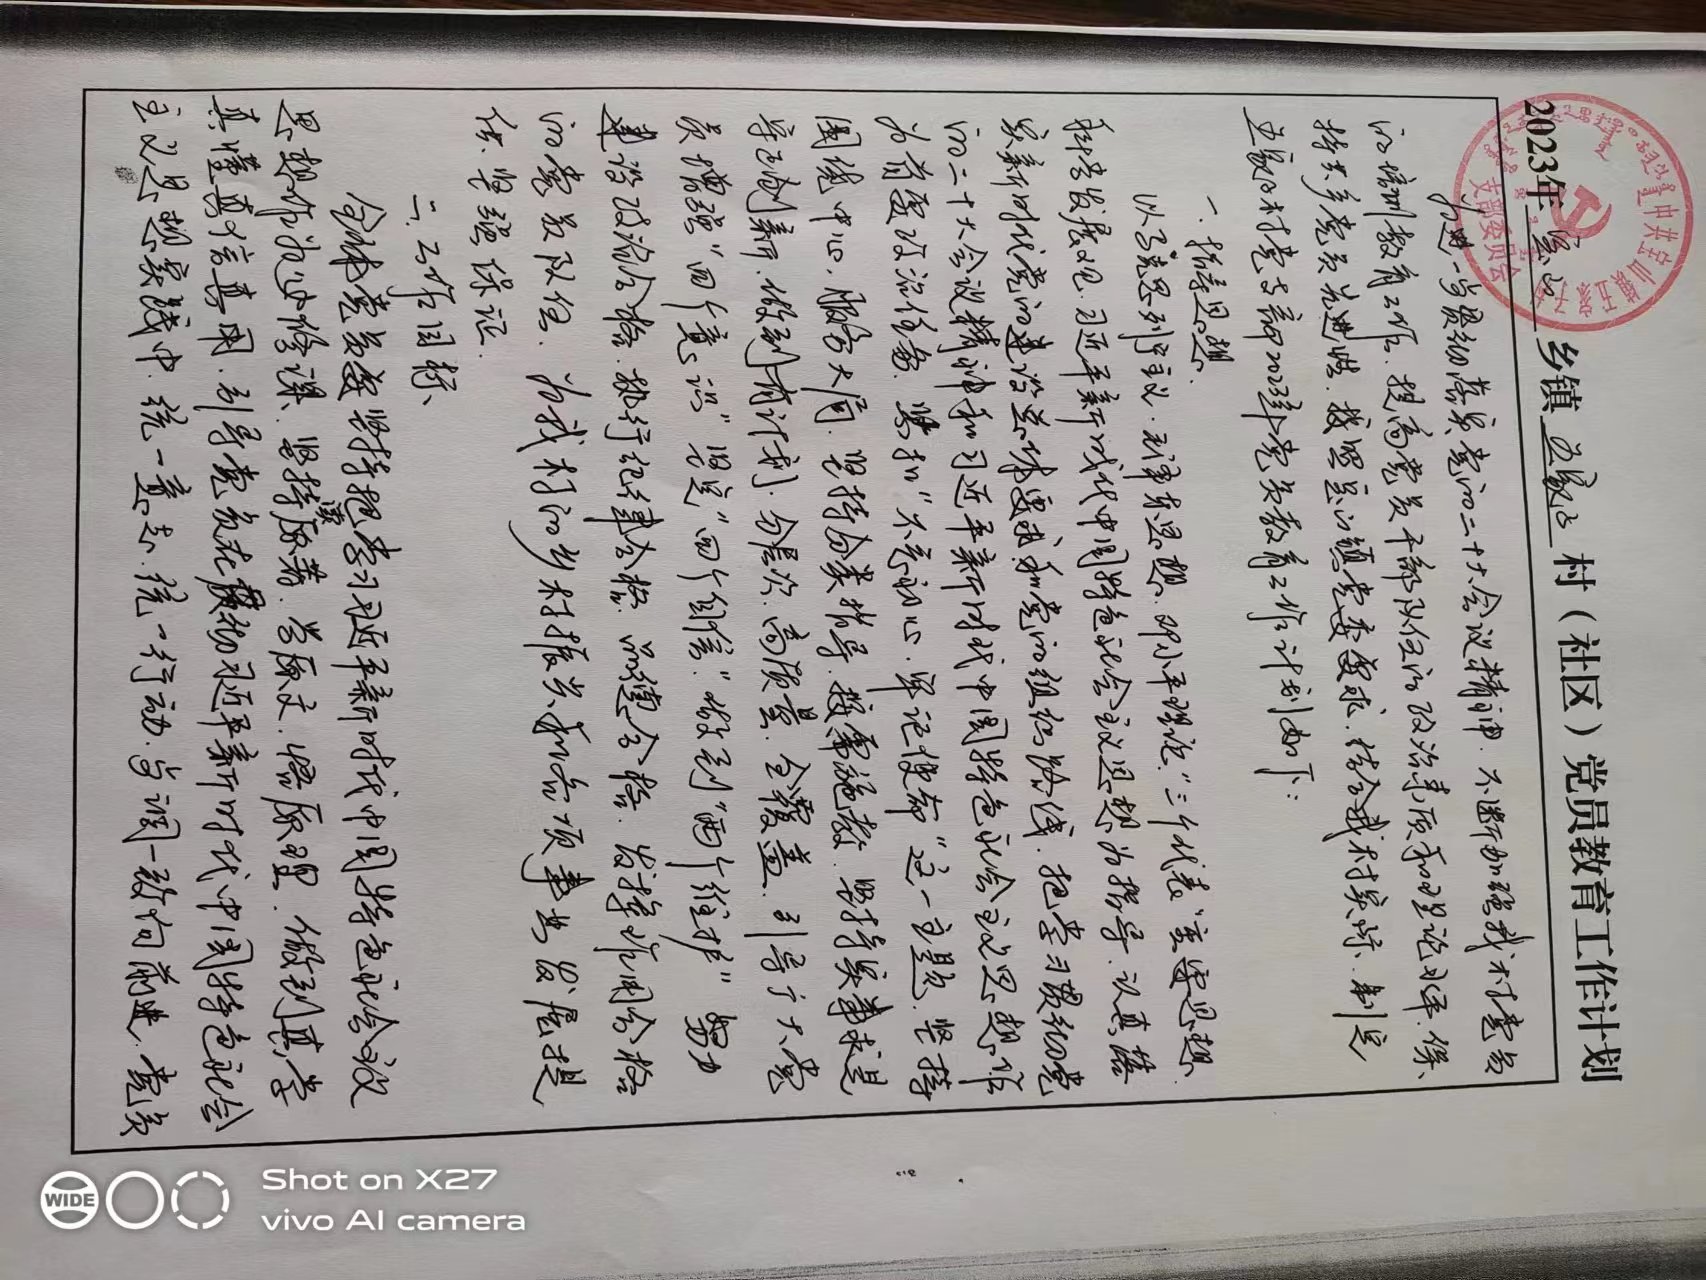 中共宝山镇五家子村
支部委员会
2023年 宝山 乡镇 五家子 村（社区）党员教育工作计划
为进一步贯彻落实党的二十大会议精神.不断加强我村党员
的培训教育工作.提高党员干部队伍的政治素质和理论水平.保
持共产党员先进性.按照宝山镇党委要求.结合我村实际.制定
五家子村党支部2023年党员教育工作计划如下:
一.指导思想.
以马克思列宁主义.毛泽东思想.邓小平理论."三个代表"重要思想.
科学发展观.习近平新时代中国特色社会主义思想为指导.认真落
实新时代党的建设总体要求和党的组织路线.把学习贯彻党
的二十大会议精神和习近平新时代中国特色社会主义思想作
为首要政治任务.紧扣"不忘初心.牢记使命"这一主题.坚持
围绕中心.服务大局.坚持分类指导.按需施教.坚持实事求是
守正创新.做到有计划.分层次.高质量.全覆盖.引导广大党
员增强"四个意识"坚定"四个自信".做到"两个维护"努力
建设政治合格.执行纪律合格.品德合格.发挥作用合格
的党员队伍.为我村的乡村振兴和各项事业发展提
供坚强保证.
二.工作目标.
全体党员要坚持把学习习近平新时代中国特色社会主义
思想作为必修课.坚持读原著.学原文.悟原理.做到真学
真懂真信真用.引导党员在贯彻习近平新时代中国特色社会
主义思想实践中.统一意志.统一行动.步调一致向前进.党员
Shot on X27
vivo AI camera
WIDE